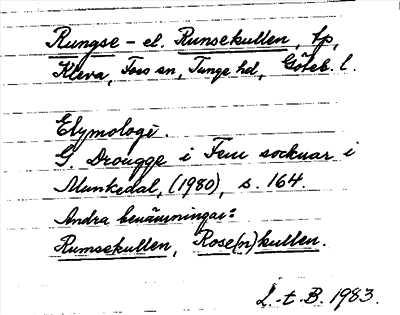 Rungse- el. Runsekullen, tp,
Kleva, Foss sn, Tunge hd, Göteb. l.
Etymologi.
G. Drougge i Fem socknar i
Munkedal, (1980), s. 164.
Andra benämningar:
Rumsekullen, Rose(n)kullen.
L. t. B. 1983.